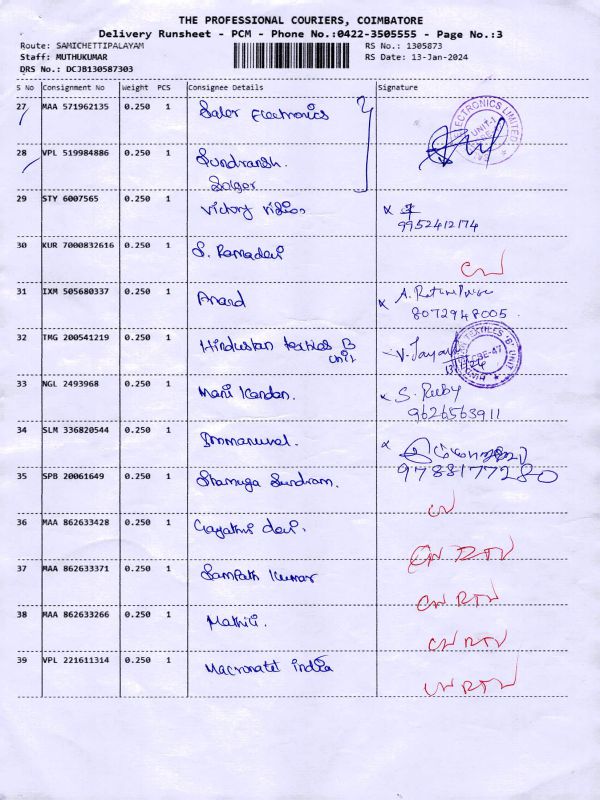 THE PROFESSIONAL COURIERS, COIMBATORE
Delivery Runsheet - PCM - Phone No.:0422-3505555 - Page No.:3
Route: SAMICHETTIPALAYAM RS No.: 1305873
Staff: MUTHUKUMAR RS Date: 13-Jan-2024
DRS No.: DCJB130587303
S No Consignment No Weight PCS Consignee Details Signature
27 MAA 571962135 0.250 1 Salor Electronics
ECTRONICS LIMITED UNIT-1
28 VPL 519984886 0.250 1 Sundransh.
Salger
29 STY 6007565 0.250 1 Victory Videos
9952412174
30 KUR 7000832616 0.250 1 S. Ramadevi
31 IXM 505680337 0.250 1 Anand A.
8072948005
32 TMG 200541219 0.250 1 Hindustan textiles B V. Jayan
Unit 13/1/24
TEXTILES 'B' UNIT CBE-47
33 NGL 2493968 0.250 1 Mani Kandan. S. Ruby
9626563911
34 SLM 336820544 0.250 1 Immanuval.
9788177280
35 SPB 20061649 0.250 1 Shamuga Sundram.
36 MAA 862633428 0.250 1 Gayathri devi.
37 MAA 862633371 0.250 1 Sampath Kumar
38 MAA 862633266 0.250 1 Mathili.
39 VPL 221611314 0.250 1 Macronatel India